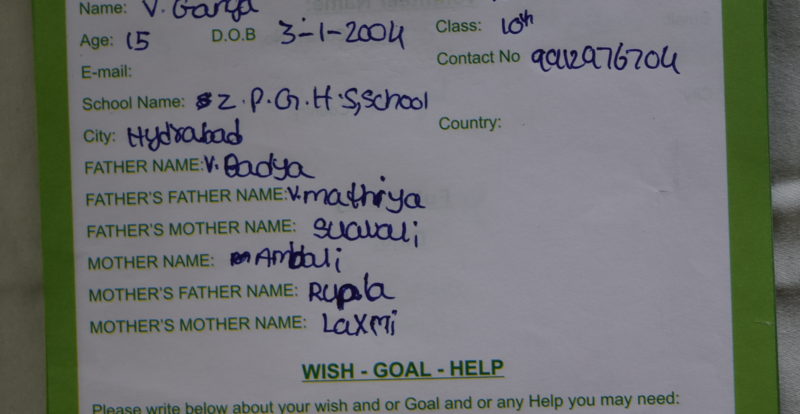 Name: V. Ganga
Age: 15 D.O.B 3-1-2004 Class: 10th
E-mail: Contact No 9912976704
School Name: Z.P.G.H.S, School
City: Hydrabad Country:
FATHER NAME: V. Badya
FATHER'S FATHER NAME: V. mathriya
FATHER'S MOTHER NAME:
MOTHER NAME: Ambali
MOTHER'S FATHER NAME: Rupla
MOTHER'S MOTHER NAME: Laxmi
WISH - GOAL - HELP
Please write below about your wish and or Goal and or any Help you may need: